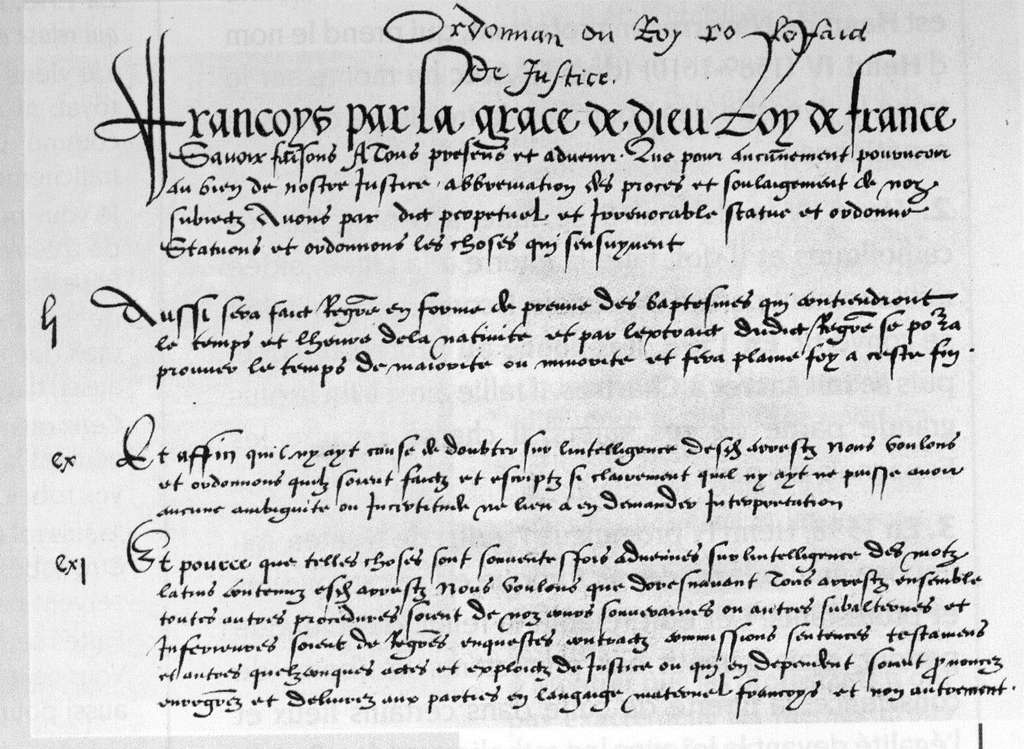 Ordonnan du Roy so le faict
de Justice.
Francoys par la grace de dieu Roy de france
Savoir faisons A Tous presens et advenir. Que pour aucunement pourveoir
au bien de nostre Justice, abbreviation des proces et soulaigement de noz
subiectz Avons par dict perpetuel et Irrevocable statue et ordonne
Statuons et ordonnons les choses qui sensuyvent
lj Aussi sera faict Regre en forme de preuve des baptesmes qui contiendront
le temps et lheure dela nativite et par lextraict dudict Regre se pora
prouver le temps de maiorite ou minorite et fera plaine foy a ceste fin.
cx Et affin quil ny ayt cause de doubter sur lintelligence desd arrestz Nous voulons
et ordonnons quilz soient faictz et escriptz si clairement quil ny ayt ne puisse avoir
aucune ambiguite ou Incertitude ne lieu a en demander Interpretation
cxj Et pource que telles choses sont souventesfois advenues sur lintelligence des motz
latins contenuz esd arrestz Nous voulons que doresnavant Tous arrestz ensemble
toutes autres procedures soient de noz cours souveraines ou autres subalternes et
Inferieures soient de Regres enquestes contractz commissions sentences testamens
et autres quelzconques actes et exploictz de Justice ou qui en dependent soient pronocez
enregrez et delivrez aux parties en langaige maternel francoys et non autrement.